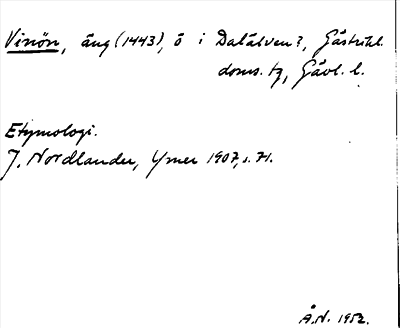 Vinön, äng (1443), ö i Dalälven?, Gästrikl.
doms. tg, Gävl. l.
Etymologi.
J. Nordlander, Ymer 1907, s. 71.
Å.N. 1952.